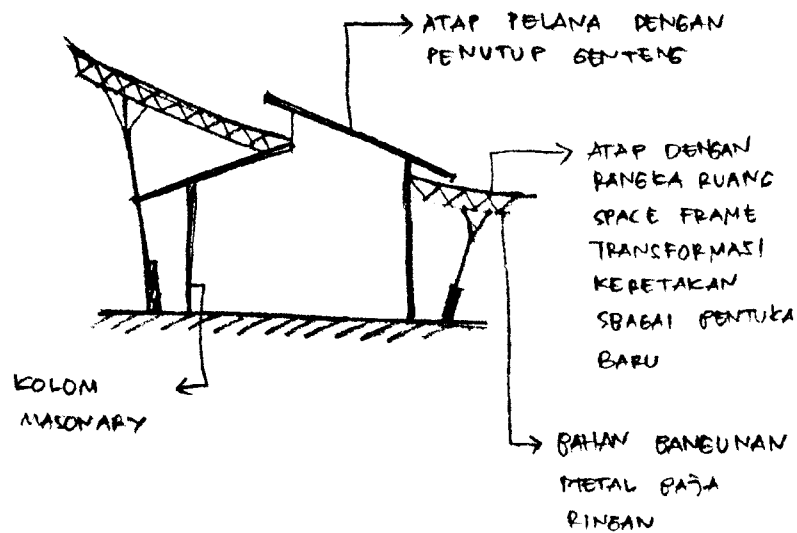 ATAP PELANA DENGAN
PENUTUP GENTENG
ATAP DENGAN
RANGKA RUANG
SPACE FRAME
TRANSFORMASI
KERETAKAN
SBAGAI BENTUKA
BARU
KOLOM
MASONARY
BAHAN BANGUNAN
METAL BAJA
RINGAN